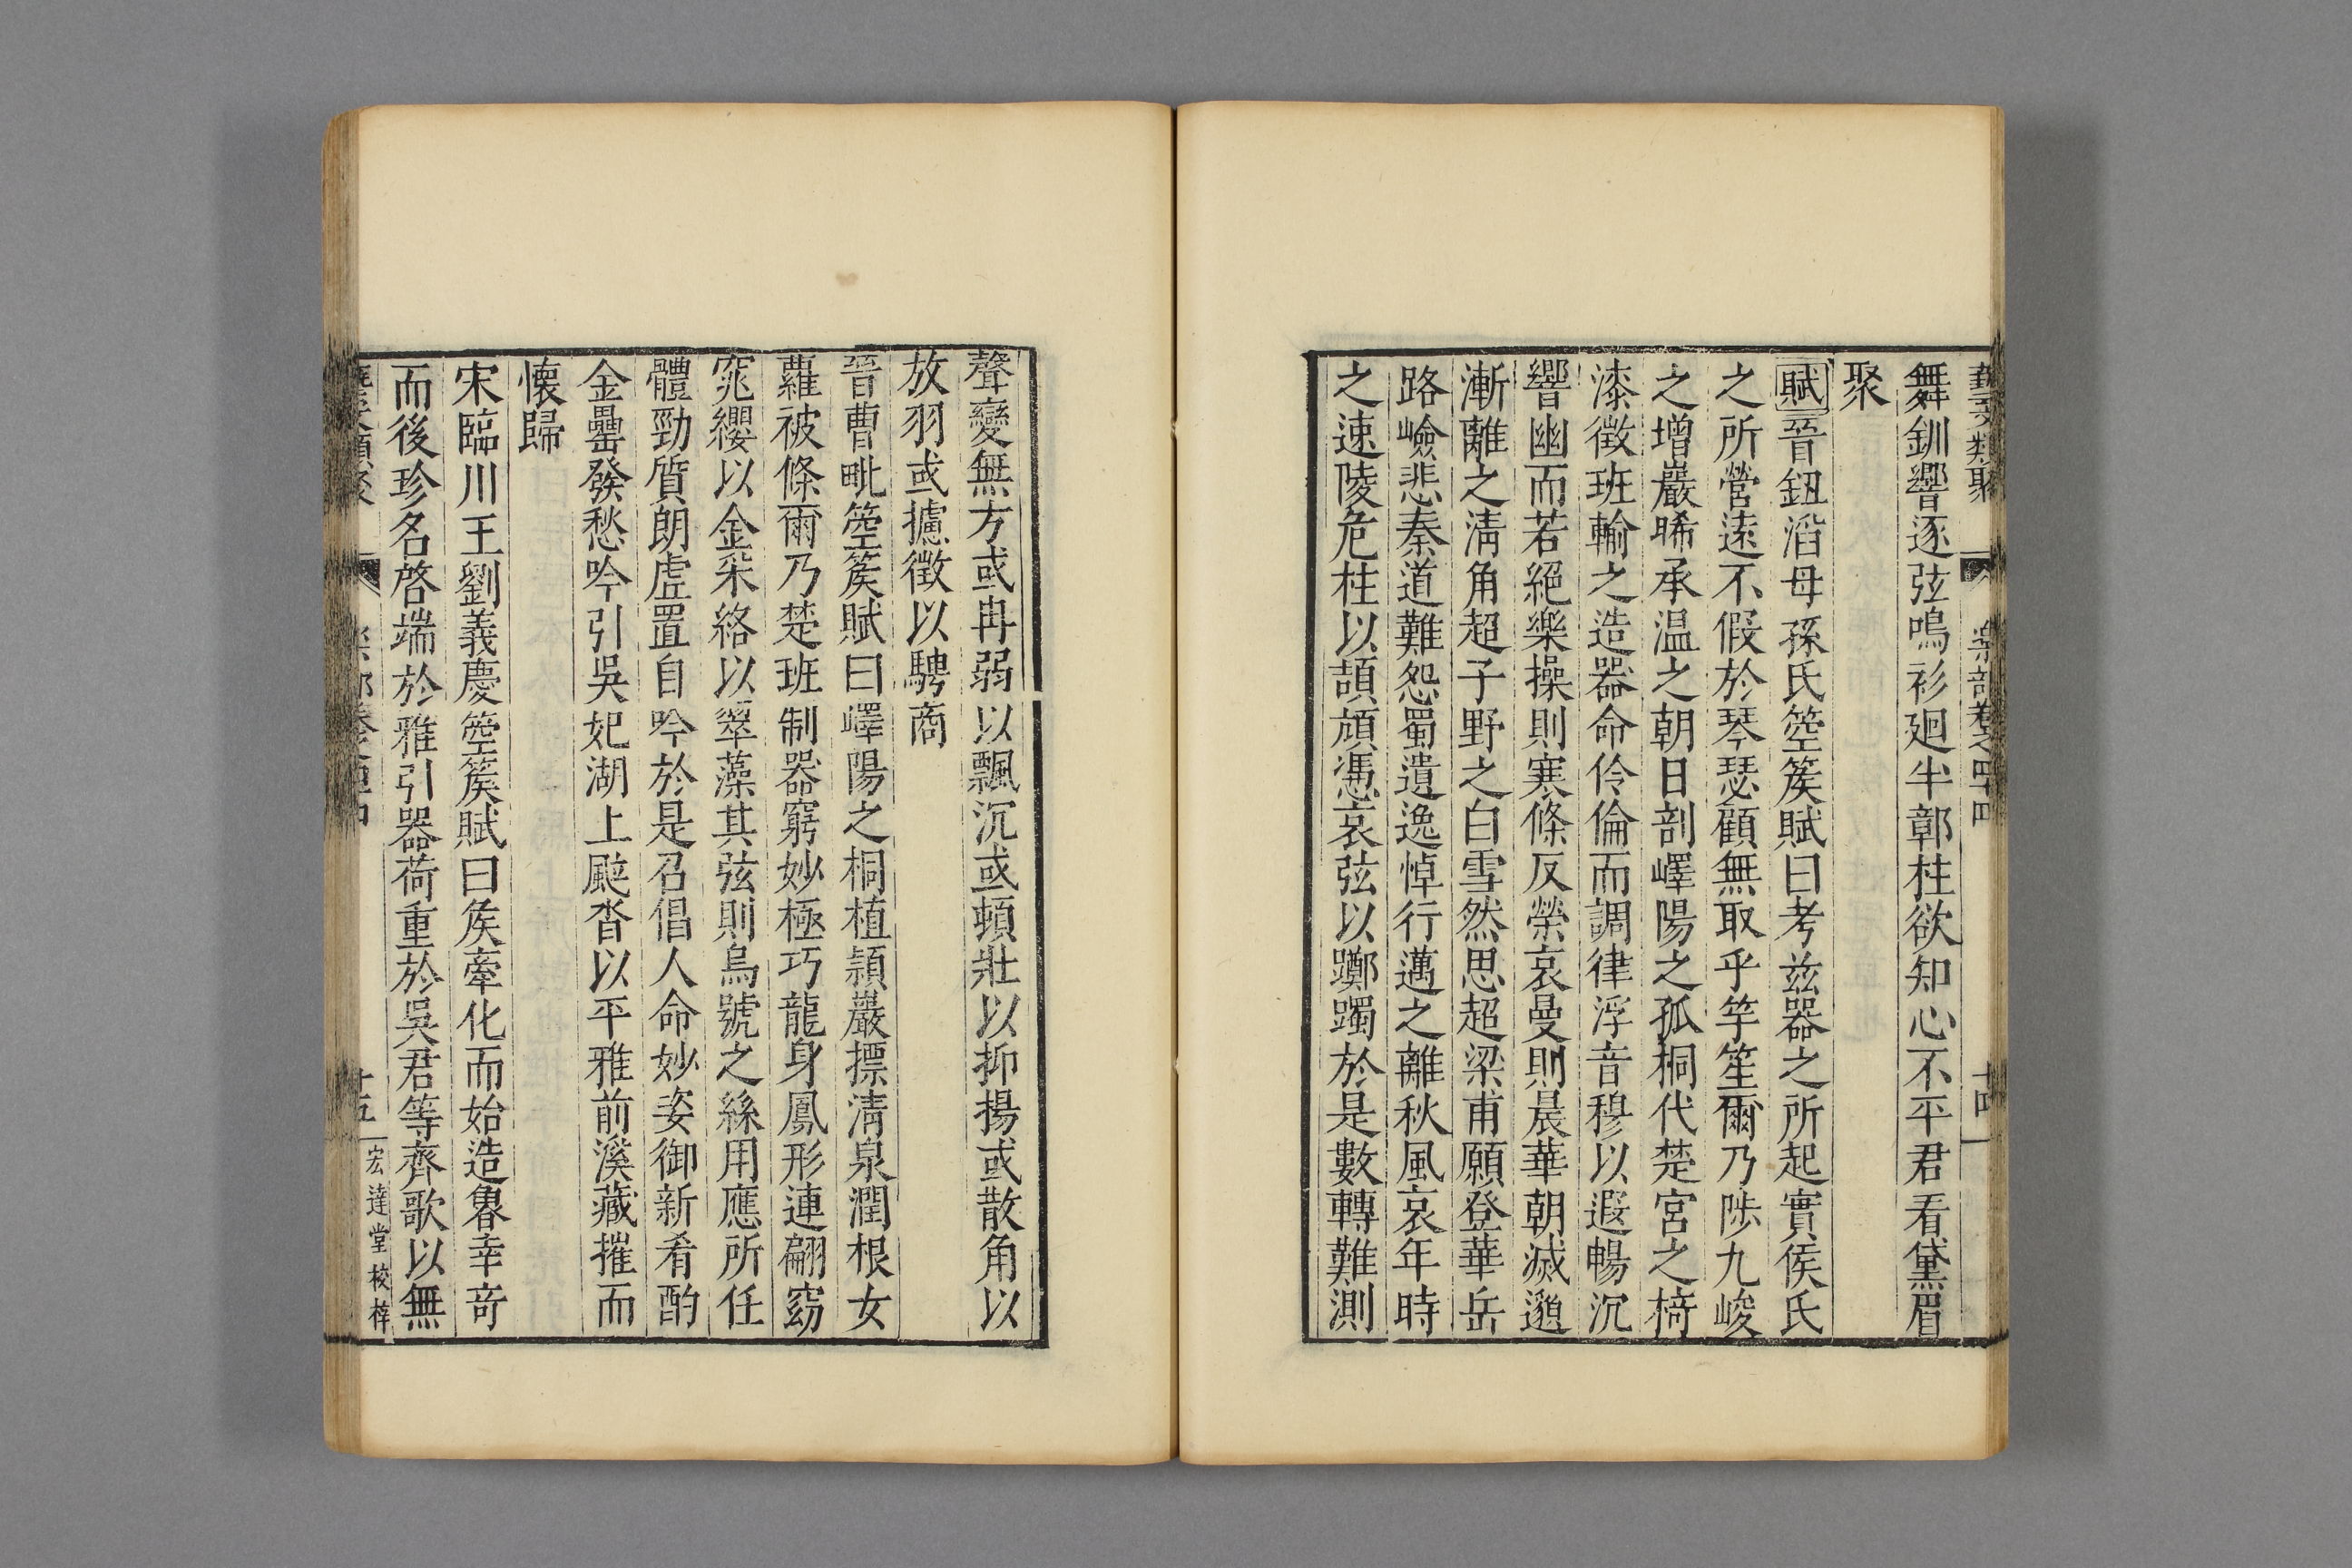 藝文類聚 樂部卷之四十四 十四
舞釧響逐弦鳴衫廻半鄣柱欲知心不平君看黛眉
聚
賦晉鈕滔母孫氏箜篌賦曰考兹器之所起實侯氏
之所營遠不假於琴瑟顧無取乎竽笙爾乃陟九峻
之增巖晞承温之朝日剖嶧陽之孤桐代楚宮之椅
漆徵班輸之造器命伶倫而調律浮音穆以遐暢沉
響幽而若絕樂操則寒條反榮哀曼則晨華朝滅邈
漸離之清角超子野之白雪然思超梁甫願登華岳
路嶮悲秦道難怨蜀遺逸悼行邁之離秋風哀年時
之速陵危柱以頡頏憑哀弦以躑躅於是數轉難測
聲變無方或冉弱以飄沉或頓壯以抑揚或散角以
放羽或攄徵以騁商
晉曹毗箜篌賦曰嶧陽之桐植潁巖摽清泉潤根女
蘿被條爾乃楚班制器窮妙極巧龍身鳳形連翩窈
窕纓以金采絡以翠藻其弦則烏號之絲用應所任
體勁質朗虛置自吟於是召倡人命妙姿御新肴酌
金罍發愁吟引吳妃湖上颷沓以平雅前溪藏摧而
懷歸
宋臨川王劉義慶箜篌賦曰侯牽化而始造魯幸奇
而後珍名啓端於雅引器荷重於吳君等齊歌以無
十五 宏達堂校梓